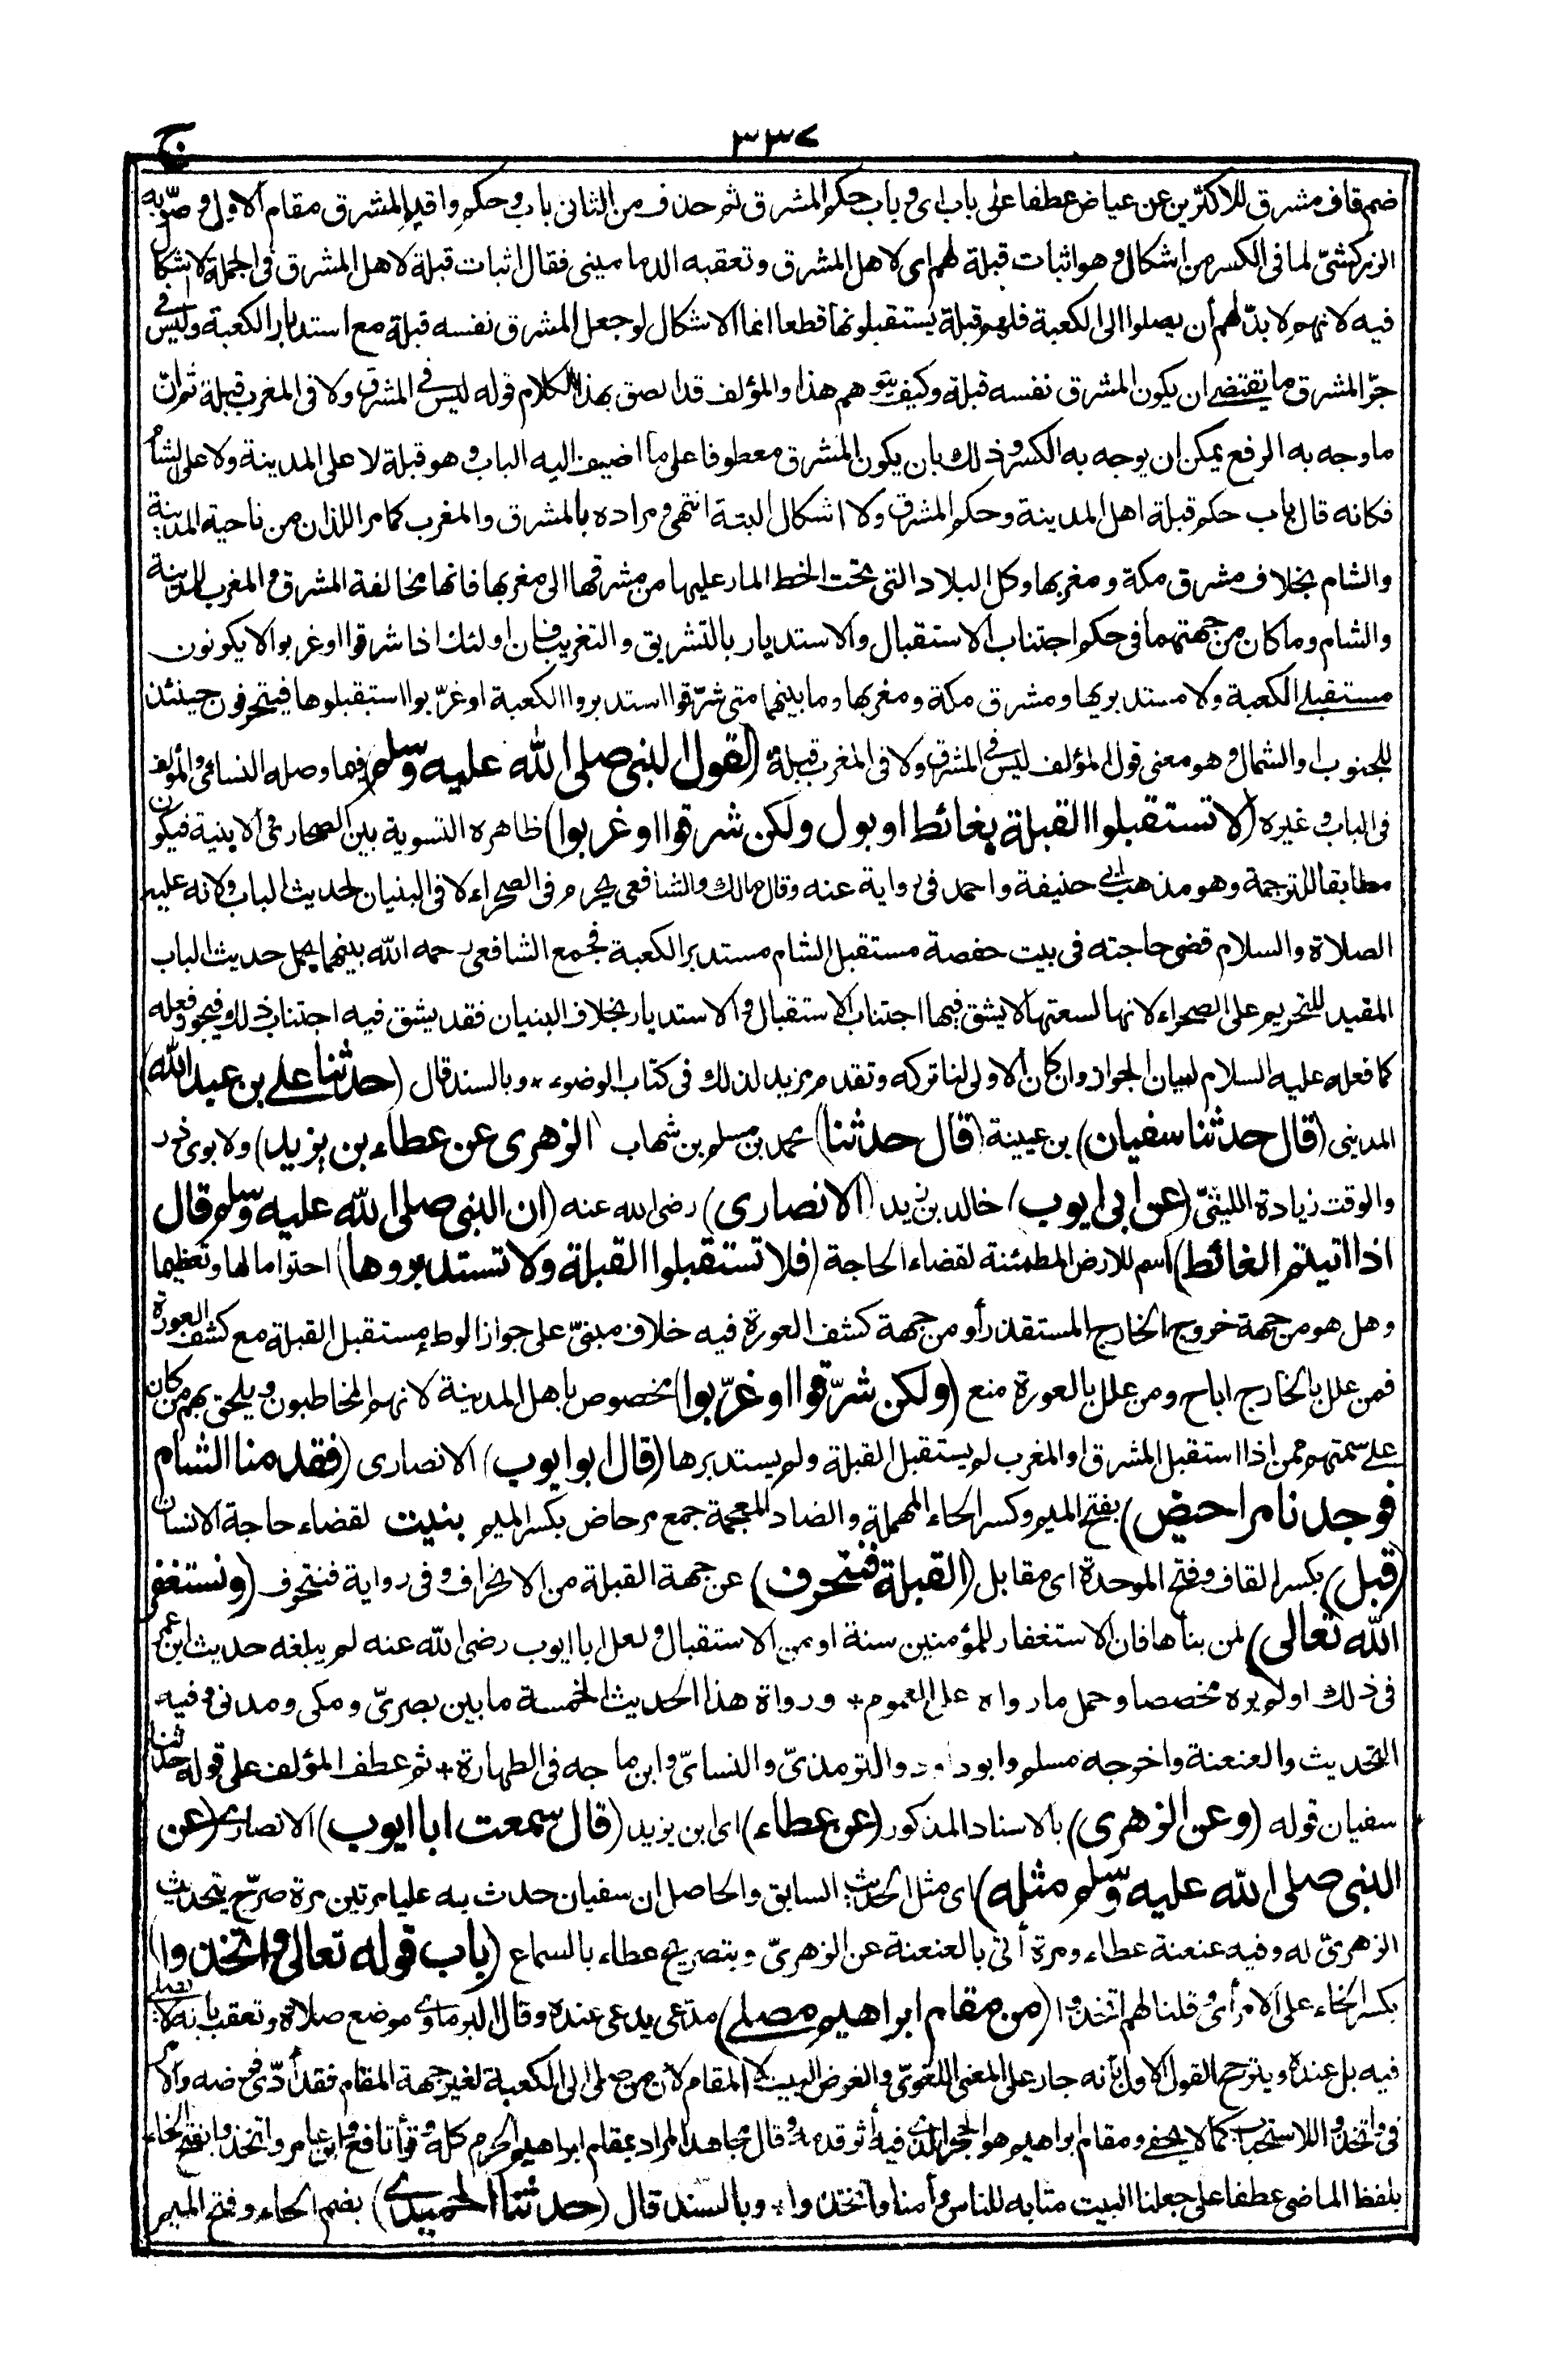 ٣٣٧ ج
ضم قاف مشرق للاكثرين عن عياض عطفا على باب اى وباب حكم المشرق ثم حذف من الثانى باب وحكم واقيم المشرق مقام الاول وصوّبه
الزركشىّ لما فى الكسر من اشكال وهو اثبات قبلة لهم اى لاهل المشرق وتعقبه الدمامينى فقال اثبات قبلة لاهل المشرق فى الجملة لا اشكال
فيه لانهم لا بدّ لهم أن يصلوا الى الكعبة فلهم قبلة يستقبلونها قطعا انما الاشكال لو جعل المشرق نفسه قبلة مع استدبار الكعبة وليس فى
جرّ المشرق ما يقتضى ان يكون المشرق نفسه قبلة وكيف يتوهم هذا والمؤلف قد الصق بهذا الكلام قوله ليس فى المشرق ولا فى المغرب قبلة ثم انّ
ما وجه به الرفع يمكن ان يوجه به الكسر وذلك بان يكون المشرق معطوفا على ما اضيف اليه الباب وهو قبلة لا على المدينة ولا على الشأم
فكانه قال باب حكم قبلة اهل المدينة وحكم المشرق ولا اشكال البتة انتهى ومراده بالمشرق والمغرب كما مر اللذان من ناحية المدينة
والشام بخلاف مشرق مكة ومغربها وكل البلاد التى تحت الخط المار عليها من مشرقها الى مغربها فانها مخالفة المشرق والمغرب للمدينة
والشام وما كان من جهتهما فى حكم اجتناب الاستقبال والاستدبار بالتشريق والتغريب فان اولئك اذا شرقوا او غربوا لا يكونون
مستقبلى الكعبة ولا مستدبريها ومشرق مكة ومغربها وما بينهما متى شرّقوا استدبروا الكعبة او غرّبوا استقبلوها فينحرفون حينئذ
للجنوب او الشمال وهو معنى قول المؤلف ليس فى المشرق ولا فى المغرب قبلة (لقول النبى صلى الله عليه وسلم) فيما وصله النسائى والمؤلف
فى الباب وغيره (لا تستقبلوا القبلة بغائط او بول ولكن شرقوا او غربوا) ظاهره التسوية بين الصحارى والابنية فيكون
مطابقا للترجمة وهو مذهب ابى حنيفة واحمد فى رواية عنه وقال مالك والشافعى يحرم فى الصحراء لا فى البنيان لحديث الباب ولانه عليه
الصلاة والسلام قضى حاجته فى بيت حفصة مستقبل الشام مستدبر الكعبة فجمع الشافعى رحمه الله بينهما بحمل حديث الباب
المقيد للتحريم على الصحراء لانها لسعتها لا يشق فيها اجتناب الاستقبال والاستدبار بخلاف البنيان فقد يشق فيه اجتناب ذلك فيجوز فعله
كما فعله عليه السلام لبيان الجواز وان كان الاولى لنا تركه وتقدم مزيد لذلك فى كتاب الوضوء * وبالسند قال (حدثنا على بن عبد الله)
المدينى (قال حدثنا سفيان) بن عيينة (قال حدثنا) محمد بن مسلم بن شهاب (الزهرى عن عطاء بن يزيد) ولابوى ذر
والوقت زيادة الليثىّ (عن ابى ايوب) خالد بن زيد (الانصارى) رضى الله عنه (ان النبى صلى الله عليه وسلم قال
اذا اتيتم الغائط) اسم للارض المطمئنة لقضاء الحاجة (فلا تستقبلوا القبلة ولا تستدبروها) احتراما لها وتعظيما
وهل هو من جهة خروج الخارج المستقذر أو من جهة كشف العورة فيه خلاف مبنىّ على جواز الوطء مستقبل القبلة مع كشف العورة
فمن علل بالخارج اباح ومن علل بالعورة منع (ولكن شرّقوا او غرّبوا) مخصوص باهل المدينة لانهم المخاطبون ويلحق بهم من كان
على سمتهم ممن اذا استقبل المشرق او المغرب لم يستقبل القبلة ولم يستدبرها (قال ابو ايوب) الانصارى (فقدمنا الشام
فوجدنا مراحيض) بفتح الميم وكسر الحاء المهملة والضاد المعجمة جمع مرحاض بكسر الميم بنيت لقضاء حاجة الانسان
(قبل) بكسر القاف وفتح الموحدة اى مقابل (القبلة فنتحرف) عن جهة القبلة من الانحراف وفى رواية فننحرف (ونستغفر
الله تعالى) لمن بناها فان الاستغفار للمؤمنين سنة او من الاستقبال ولعل ابا ايوب رضى الله عنه لم يبلغه حديث ابن عمر
فى ذلك او لم يره مخصصا وحمل ما رواه على العموم * ورواة هذا الحديث الخمسة ما بين بصرىّ ومكى ومدنى وفيه
التحديث والعنعنة واخرجه مسلم وابو داود والترمذىّ والنسائىّ وابن ماجه فى الطهارة * ثم عطف المؤلف على قوله حدثنا
سفيان قوله (وعن الزهرى) بالاسناد المذكور (عن عطاء) اى ابن يزيد (قال سمعت ابا ايوب) الانصارى (عن
النبى صلى الله عليه وسلم مثله) اى مثل الحديث السابق والحاصل ان سفيان حدث به عليا مرتين مرة صرّح بتحديث
الزهرىّ له وفيه عنعنة عطاء ومرة أتى بالعنعنة عن الزهرىّ وبتصريح عطاء بالسماع (باب قوله تعالى واتخذوا)
بكسر الخاء على الامر أى وقلنا لهم اتخذوا (من مقام ابراهيم مصلى) مدّعى يدعى عنده وقال البرماوى موضع صلاة وتعقب بانه لا يصلى
فيه بل عنده ويترجح القول الاول بأنه جار على المعنى اللغوىّ والغرض البيت لا المقام لأن من صلى الى الكعبة لغير جهة المقام فقد أدّى فرضه والامر
فى واتخذوا للاستحباب كما لا يخفى ومقام ابراهيم هو الحجر الذى فيه أثر قدمه وقال مجاهد المراد بمقام ابراهيم الحرم كله وقرأ نافع وابن عامر واتخذوا بفتح الخاء
بلفظ الماضى عطفا على جعلنا البيت مثابه للناس وأمنا واتخذوا * وبالسند قال (حدثنا الحميدى) بضم الحاء وفتح الميم